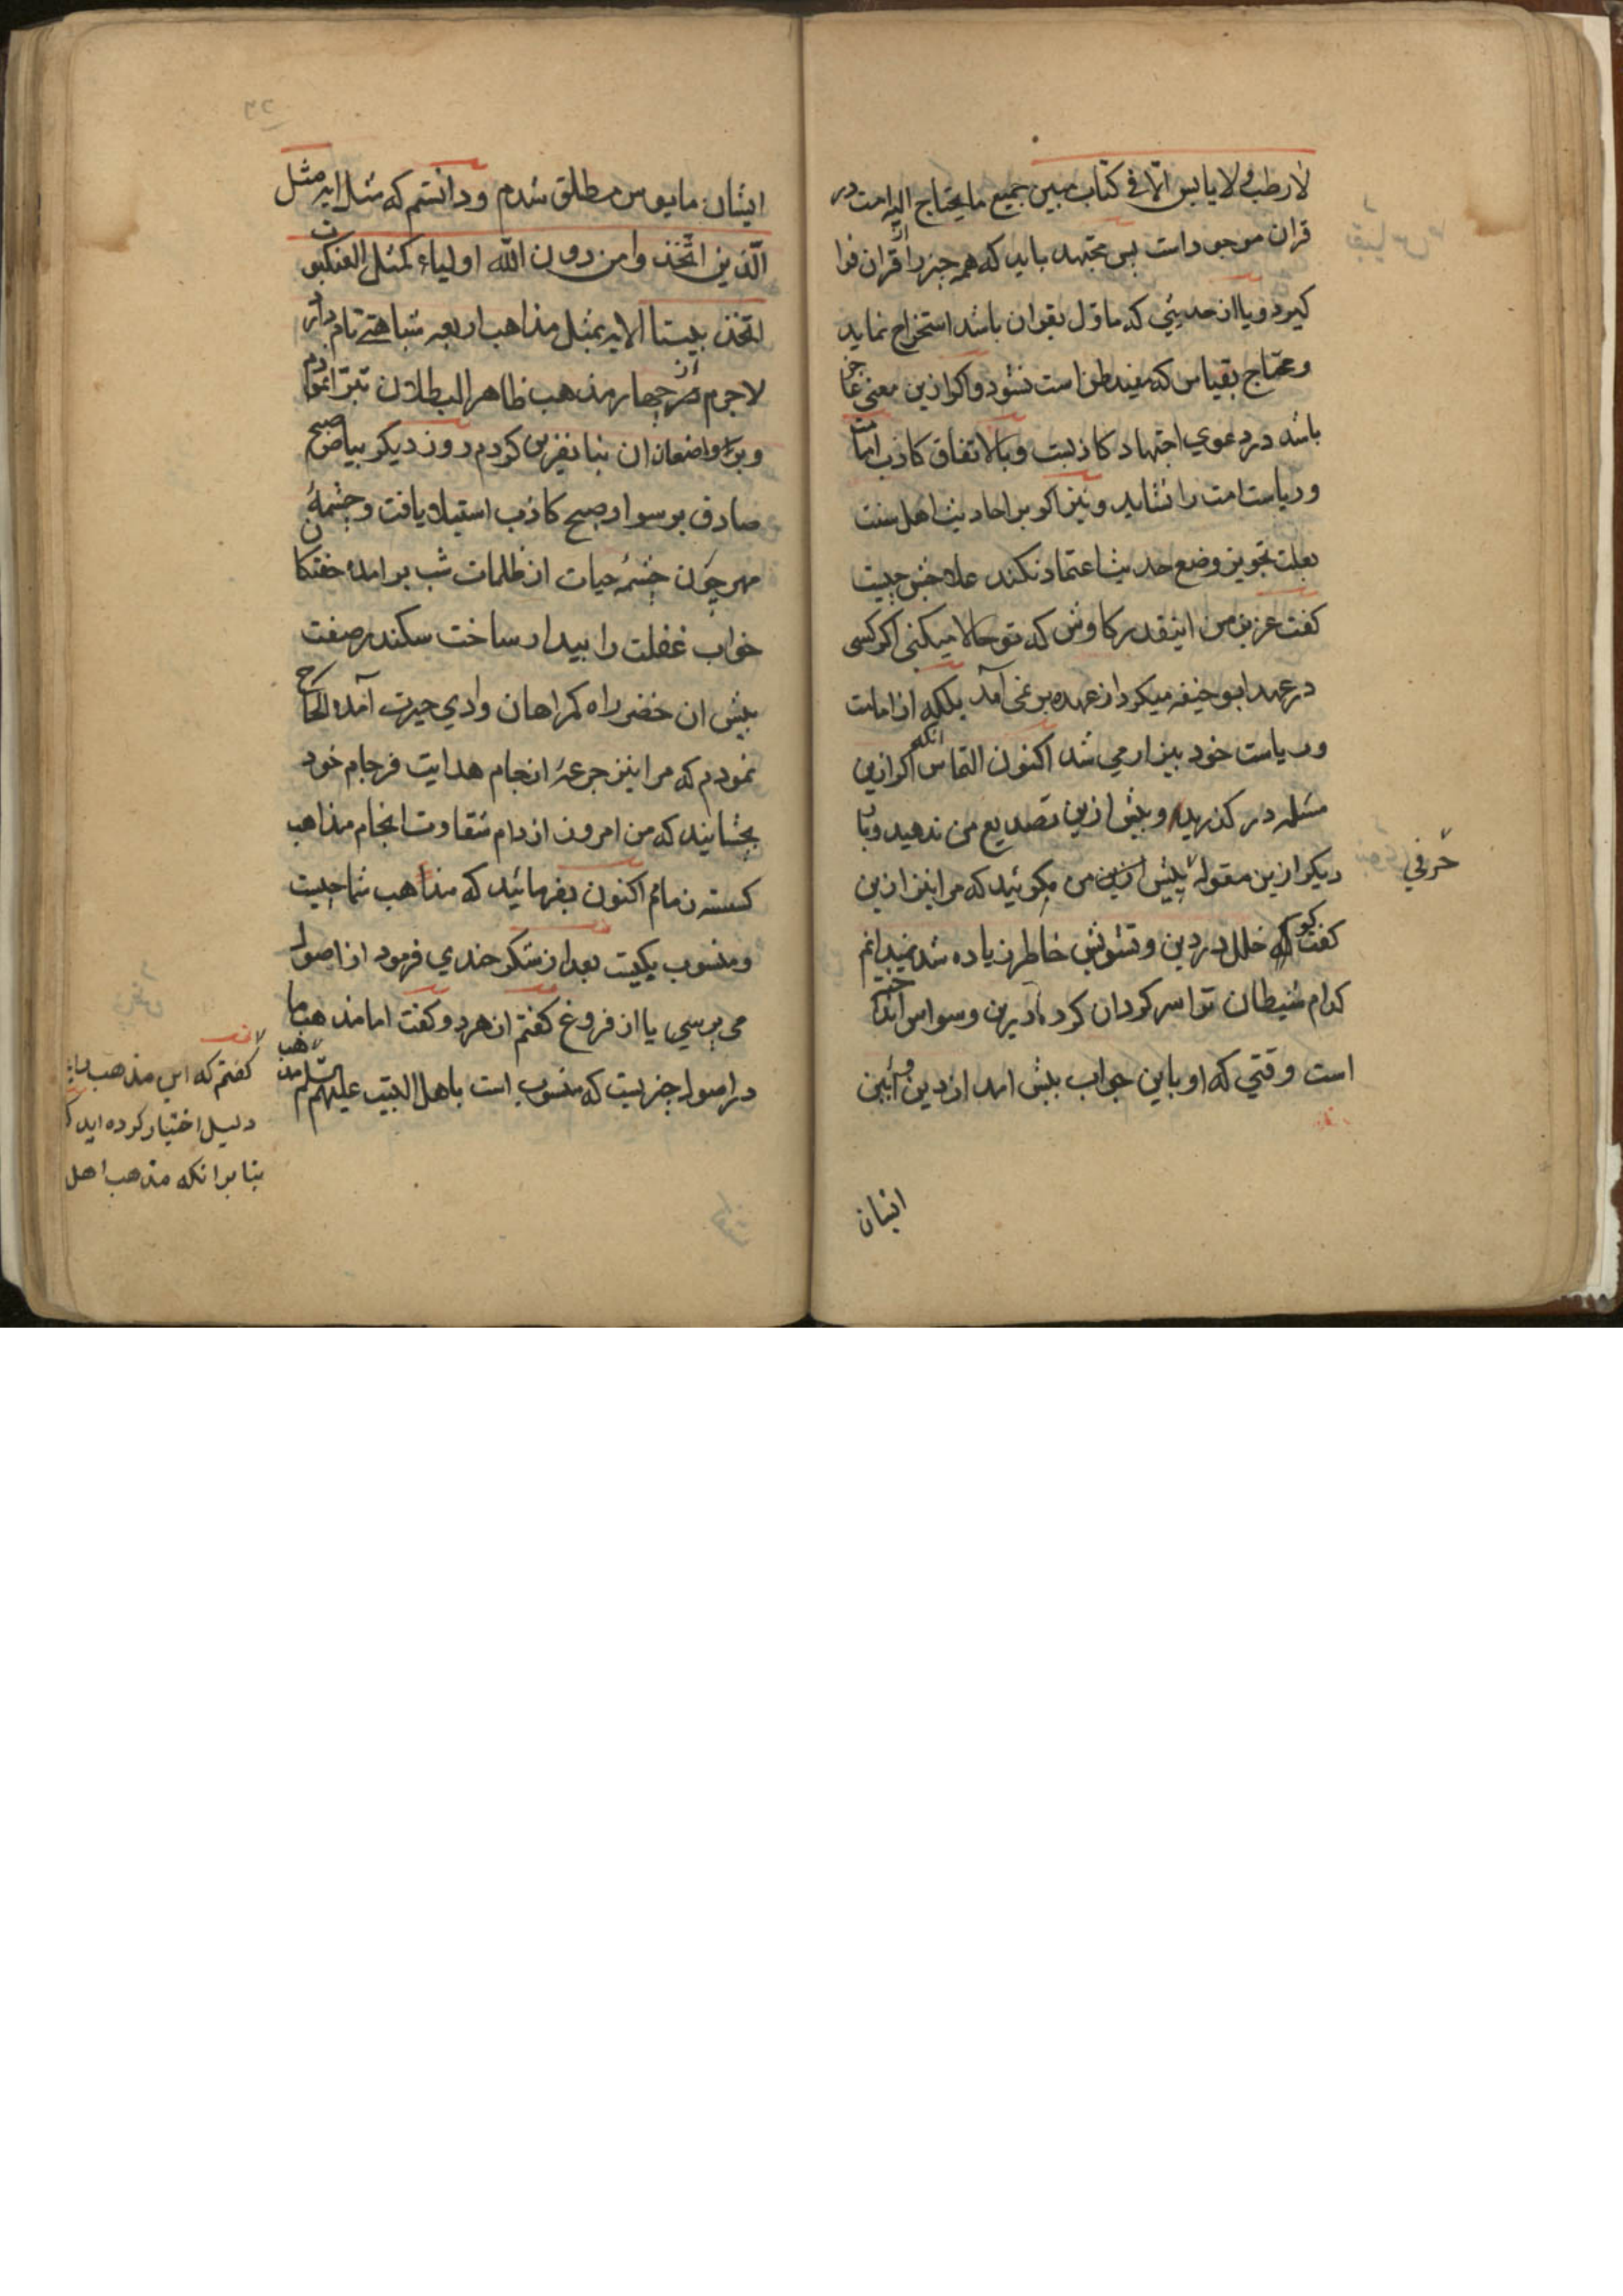 لا رطب ولا یابس الّا فی کتاب مبین جمیع ما یحتاج الیه امت در
قران موجود است پس مجتهد باید که همه چیز را از قران فرا
کیرد و یا از حدیثی که ماول بقران باشد استخراج نماید
و محتاج بقیاس که مفید ظن است نشود و اکر ازین معنی عاجز
باشد در دعوی اجتهاد کاذبست و بالاتفاق کاذب امامت
و ریاست امت را نشاید و نیز اکر بر احادیث اهل سنت
بعلت تجویز وضع حدیث اعتماد نکند علاجش چیست
کفت عزیز من اینقدر کاوش که تو حالا میکنی اکر کسی
در عهد ابو حنیفه میکرد از عهده بر نمی آمد بلکه از امامت
و ریاست خود بیزار می شد اکنون التماس انکه اکر ازین
مسئله در کذرید و بیش ازین تصدیع من ندهید و با
حرفی
دیکر ازین مقوله پیش ازین من مکوئید که مرا نیز ازین
کفت کو که خلل در دین و تشویش خاطر زیاده شد نمیدانم
کدام شیطان ترا سر کردان کرد و درین وسواس انداخته
است وقتی که او باین جواب پیش امد از دین و آئین
ایشان
ایشان مایوس مطلق شدم و دانستم که مثل ایه مثل
الّذین اتّخذوا من دون الله اولیاء کمثل العنکبوت
اتخذت بیتا الایه بمثل مذاهب اربعه شباهتی تام دارد
لاجرم از هر چهار مذهب ظاهر البطلان تبرّا نمودم
و بر واضعان ان بنا نفرین کردم روز دیکر بیاض صبح
صادق بر سواد صبح کاذب استیلا یافت و چشمهٔ
مهر چون چشمهٔ حیات از ظلمات شب برامده خفتکان
خواب غفلت را بیدار ساخت سکندر صفت
پیش ان خضر راه کمراهان وادی حیرت آمده الحاح
نمودم که مرا نیز جرعهٔ از جام هدایت فرجام خود
بچشانید که من امروز از دام شقاوت انجام مذاهب
کسسته زمام اکنون بفرمائید که مذاهب شما چیست
و منسوب بکیست بعد از شکر خندی فرمود از اصول
می پرسی یا از فروغ کفتم از هر دو کفت اما مذهب ما
در اصول چیزیست که منسوب است باهل البیت علیهم السّلام
کفتم که این مذهب را
دلیل اختیار کرده اید
بنا بر انکه مذهب اهل